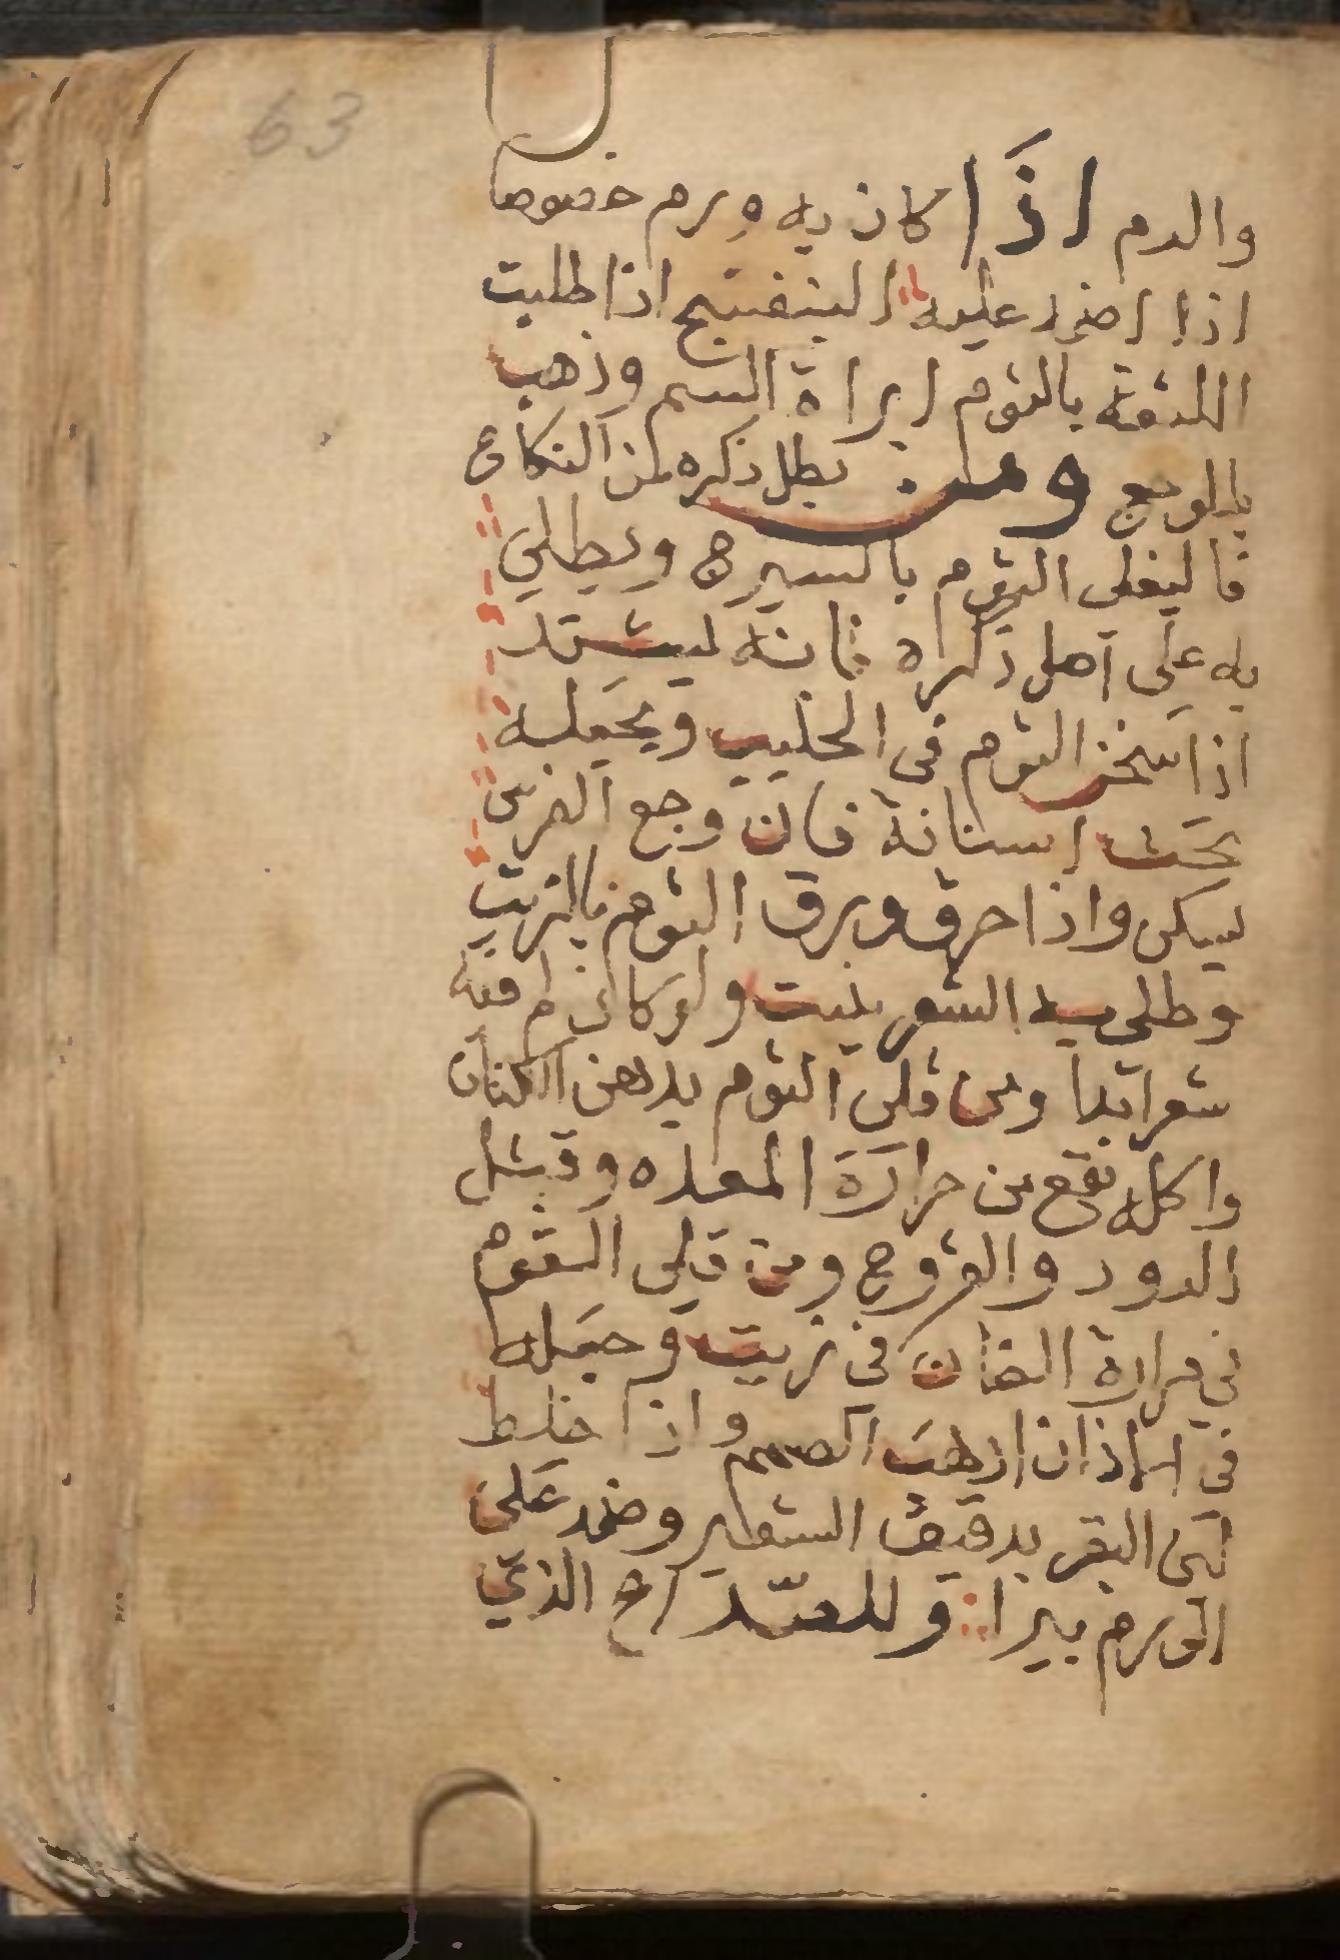 63
والدم اذَا كان به ورم خصوصا
اذا اضمد عليه البنفسج اذا طليت
اللثغة بالثوم ابراة السم وذهب
بالوجع ومن بطل ذكره من النكاع
فاليغلي الثوم بالسيرج ويطلي
به على اصل ذكراه فانه ليشتد
اذا سخن الثوم في الحليب ويجعله
تحت اسنانة فان وجع الضرس
يسكن واذا حرق ورق الثوم بالزيت
وطلى به الشعر ينبت ولو كان لم فيه
شعر ابدا ومن قلى الثوم بدهن الكتان
واكله نفع من حرارة المعده وقتل
الدود والقروح ومن قلى الثوم
في مرارة الضان في زيت وجعله
في الاذان اذهب الصمم واذا خلط
البقر بدقيق الشعير وضمد على
الورم يبرا وللصداع الذي